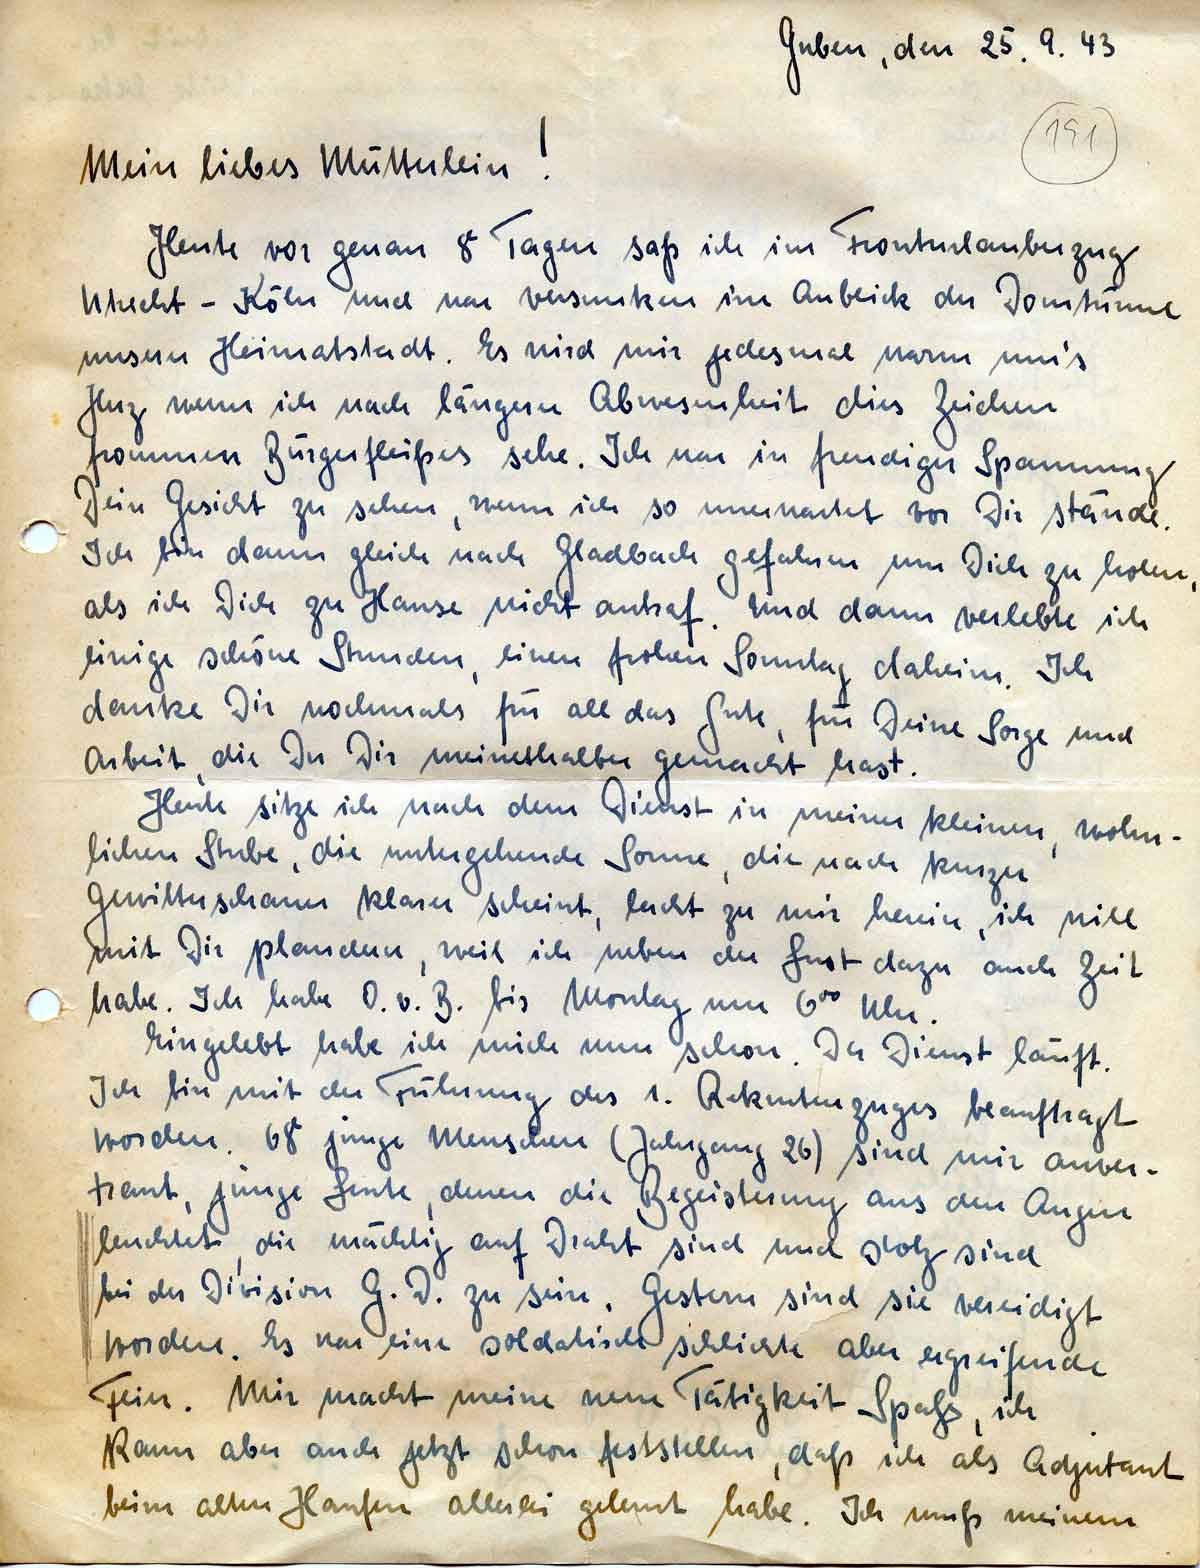 Guben, den 25.9.43
191
Mein liebes Mütterlein!
Heute vor genau 8 Tagen saß ich im Fronturlauberzug
Utrecht - Köln und war versunken im Anblick der Domtürme
unserer Heimatstadt. Es wird mir jedesmal warm um's
Herz wenn ich nach längerer Abwesenheit dies Zeichen
frommen Bürgerfleißes sehe. Ich war in freudiger Spannung
Dein Gesicht zu sehen, wenn ich so unerwartet vor Dir stände.
Ich bin dann gleich nach Gladbach gefahren um Dich zu holen,
als ich Dich zu Hause nicht antraf. Und dann verlebte ich
einige schöne Stunden, einen frohen Sonntag daheim. Ich
danke Dir nochmals für all das Gute, für Deine Sorge und
Arbeit, die Du Dir meinethalben gemacht hast.
Heute sitze ich nach dem Dienst in meiner kleinen, wohn-
lichen Stube, die untergehende Sonne, die nach kurzer
Gewitterschauer klarer scheint, lacht zu mir herein, ich will
mit Dir plaudern, weil ich neben der Lust dazu auch Zeit
habe. Ich habe O.v.B. bis Montag um 6⁰⁰ Uhr.
Eingelebt habe ich mich nun schon. Der Dienst läuft.
Ich bin mit der Führung des 1. Rekrutenzuges beauftragt
worden. 68 junge Menschen (Jahrgang 26) sind mir anver-
traut, junge Leute, denen die Begeisterung aus den Augen
leuchtet, die mächtig auf Draht sind und stolz sind
bei der Division G.D. zu sein. Gestern sind sie vereidigt
worden. Es war eine soldatisch schlichte aber ergreifende
Feier. Mir macht meine neue Tätigkeit Spaß, ich
kann aber auch jetzt schon feststellen, daß ich als Adjutant
beim alten Haufen allerlei gelernt habe. Ich muß meinem